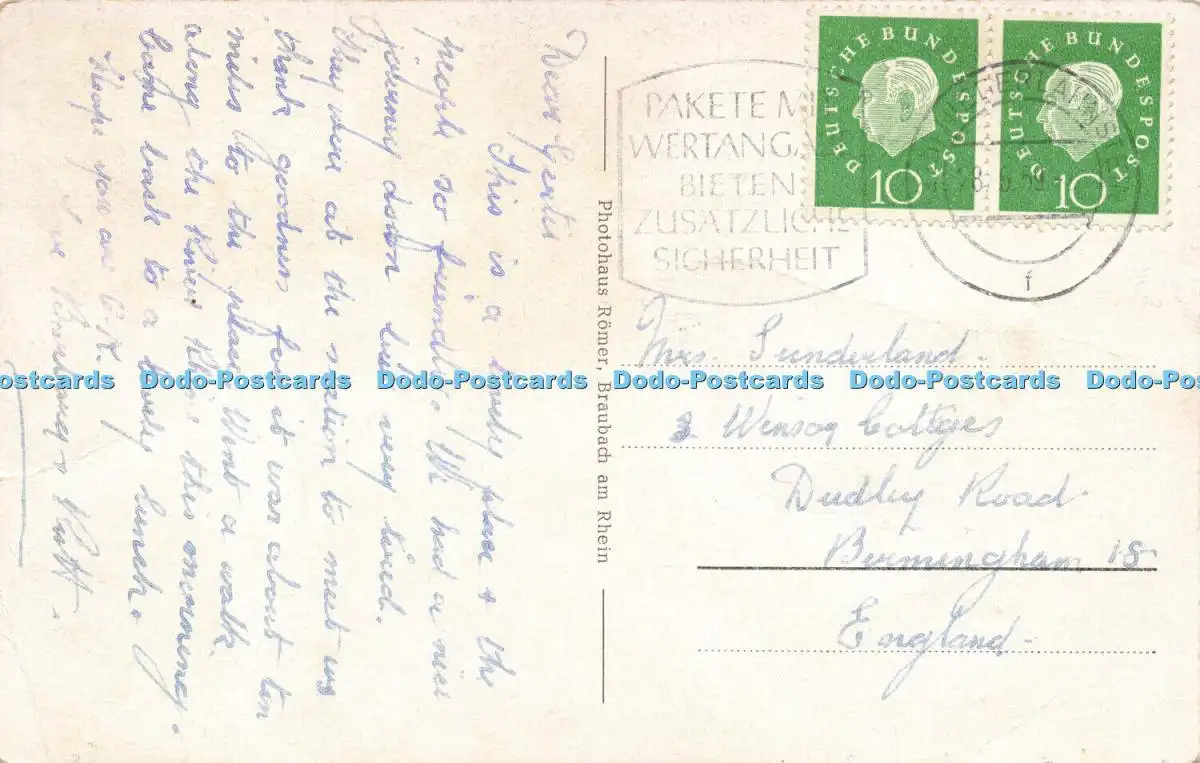 Dear Gertie
This is a lovely place & the
people so friendly. We had a nice
journey down but very tired.
They were at the station to meet us
thank goodness for it was about ten
miles to the place. Went a walk
along the River Rhine this morning.
came back to a lovely lunch.
Hope you are O.K.
Love
Photohaus Römer, Braubach am Rhein
PAKETE MIT
WERTANGABE
BIETEN
ZUSÄTZLICHE
SICHERHEIT
DEUTSCHE BUNDESPOST
10
DEUTSCHE BUNDESPOST
10
f
Mrs. Sunderland.
Dodo-Postcards Dodo-Postcards Dodo-Postcards Dodo-Postcards Dodo-Postcards Dodo-Postcards
3 Winson Cottges
Dudley Road.
Birmingham 18
England.